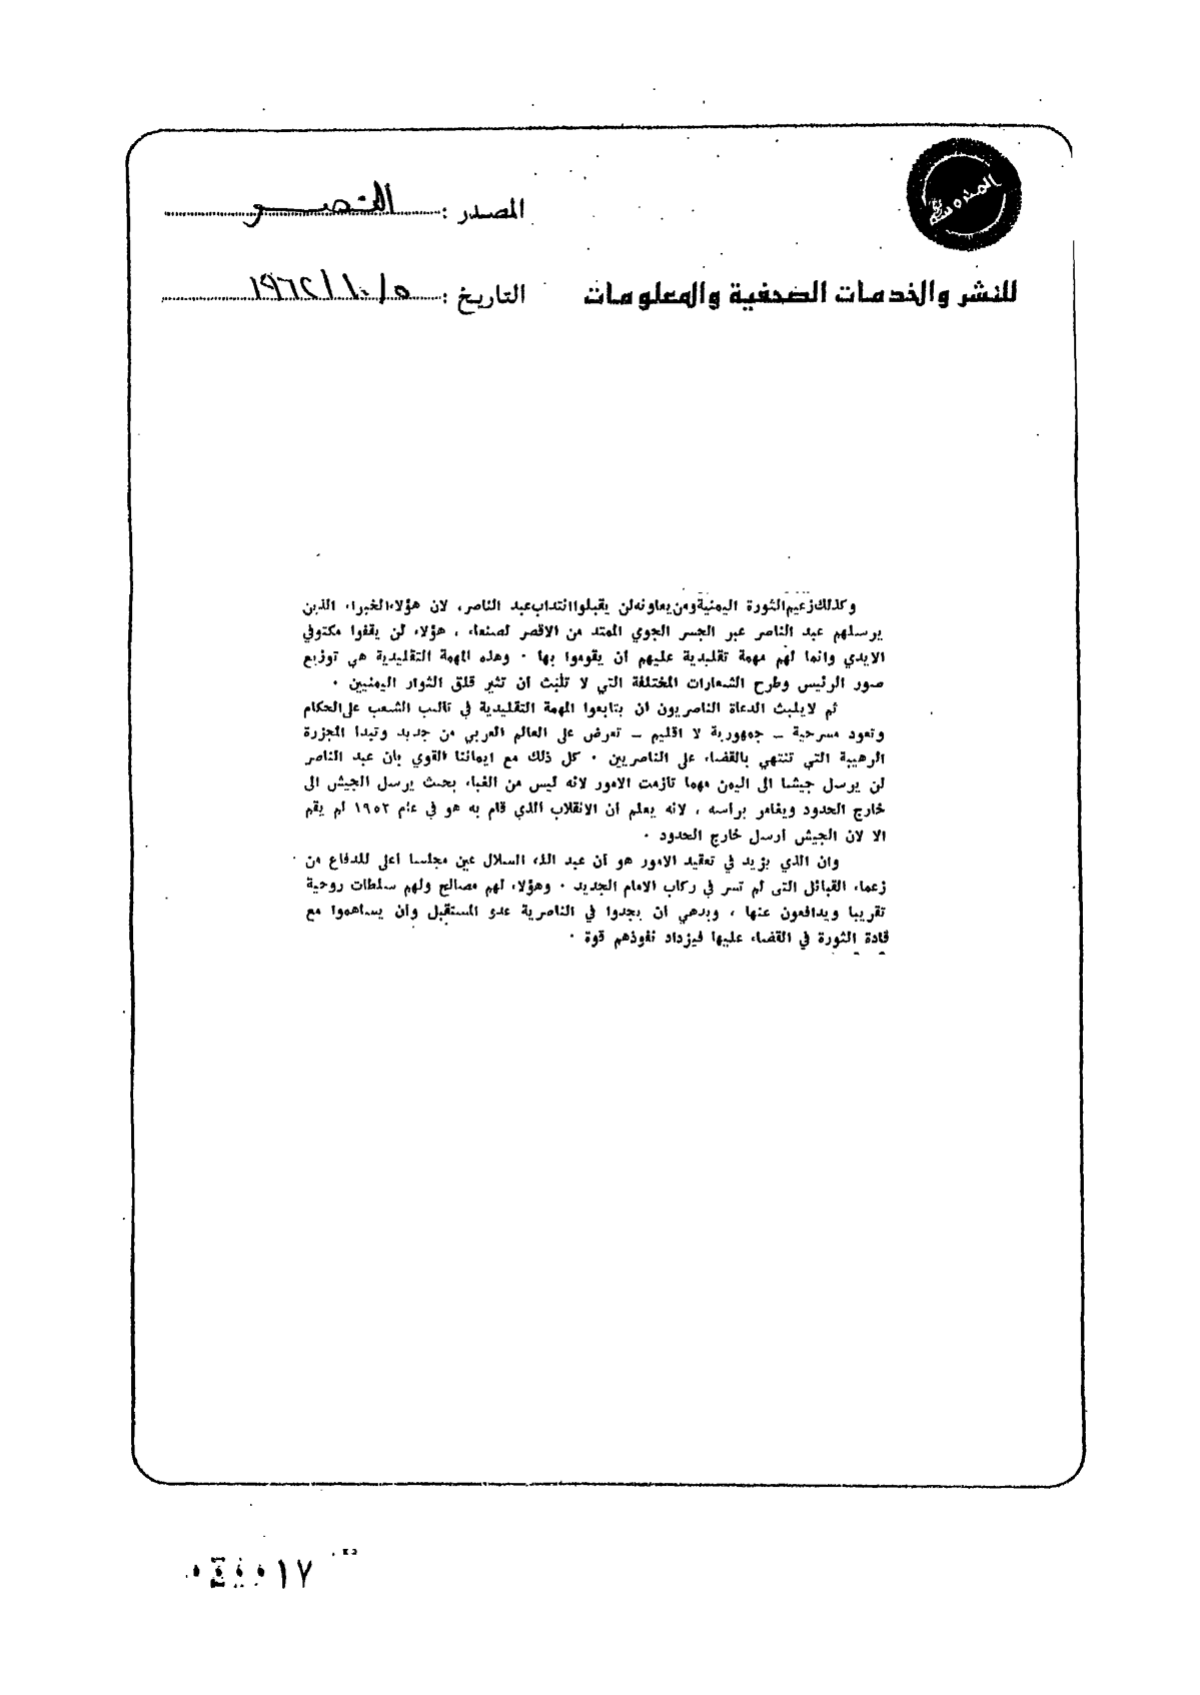 المصدر : النصر
للنشر والخدمات الصحفية والمعلومات
التاريخ : ٥/١٠/١٩٦٢
وكذلك زعيم الثورة اليمنية ومن يعاونه لن يقبلوا انتداب عبد الناصر، لان هؤلاء الخبراء الذين
يرسلهم عبد الناصر عبر الجسر الجوي الممتد من الاقصر لصنعاء ، هؤلاء لن يقفوا مكتوفي
الايدي وانما لهم مهمة تقليدية عليهم ان يقوموا بها ٠ وهذه المهمة التقليدية هي توزيع
صور الرئيس وطرح الشعارات المختلفة التي لا تلبث ان تثير قلق الثوار اليمنيين ٠
ثم لايلبث الدعاة الناصريون ان يتابعوا المهمة التقليدية في تاليب الشعب على الحكام
وتعود مسرحية - جمهورية لا اقليم - تعرض على العالم العربي من جديد وتبدا المجزرة
الرهيبة التي تنتهي بالقضاء على الناصريين ٠ كل ذلك مع ايماننا القوي بان عبد الناصر
لن يرسل جيشا الى اليمن مهما تازمت الامور لانه ليس من الغباء بحيث يرسل الجيش الى
خارج الحدود ويغامر براسه ، لانه يعلم ان الانقلاب الذي قام به هو في عام ١٩٥٢ لم يقم
الا لان الجيش ارسل خارج الحدود ٠
وان الذي يزيد في تعقيد الامور هو ان عبد الله السلال عين مجلسا اعلى للدفاع من
زعماء القبائل التى لم تسر في ركاب الامام الجديد ٠ وهؤلاء لهم مصالح ولهم سلطات روحية
تقريبا ويدافعون عنها ، وبدهي ان يجدوا في الناصرية عدو المستقبل وان يساهموا مع
قادة الثورة في القضاء عليها فيزداد نفوذهم قوة ٠